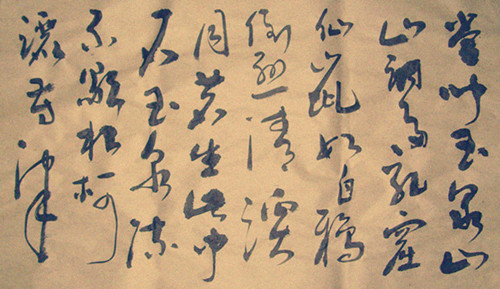 常聞玉泉山
山洞多乳窟
仙鼠如白鴉
倒懸清溪
月茗生此中
石玉泉流
不歇根柯
灑芳津